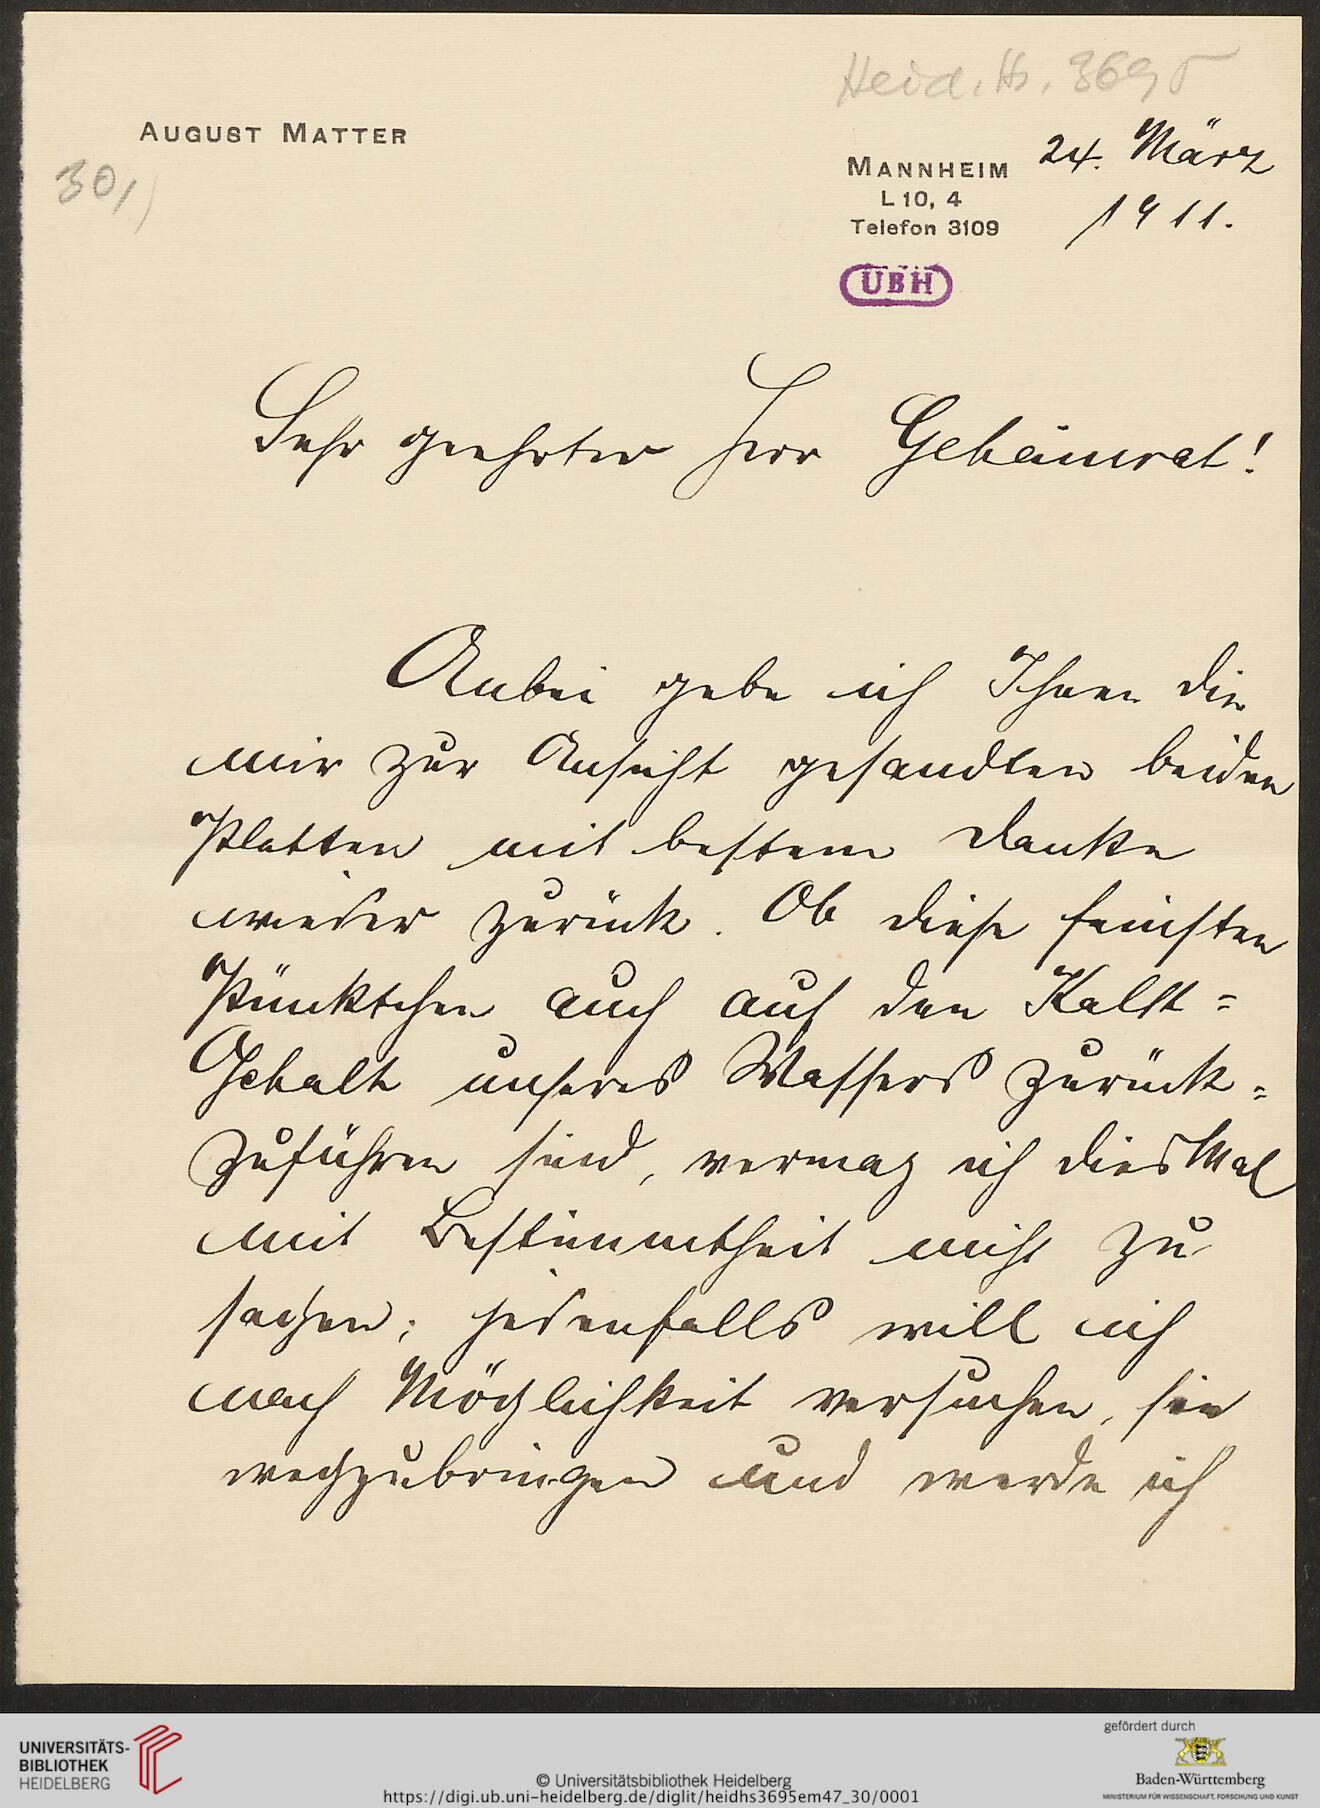 Heid. Hs. 3695
AUGUST MATTER
30,)
MANNHEIM 24. März
L 10, 4 1911.
Telefon 3109
UBH
Sehr geehrter Herr Geheimrat!
Anbei gebe ich Ihnen die
mir zur Ansicht gesandten beiden
Platten mit bestem Danke
wieder zurück. Ob diese feinsten
Pünktchen auch auf den Kalk=
Gehalt unseres Wassers zurück=
zuführen sind, vermag ich dies Mal
mit Bestimmtheit nicht zu
sagen; jedenfalls will ich
nach Möglichkeit versuchen, sie
wegzubringen und werde ich
UNIVERSITÄTS-
BIBLIOTHEK
HEIDELBERG
© Universitätsbibliothek Heidelberg
https://digi.ub.uni-heidelberg.de/diglit/heidhs3695em47_30/0001
gefördert durch
Baden-Württemberg
MINISTERIUM FÜR WISSENSCHAFT, FORSCHUNG UND KUNST